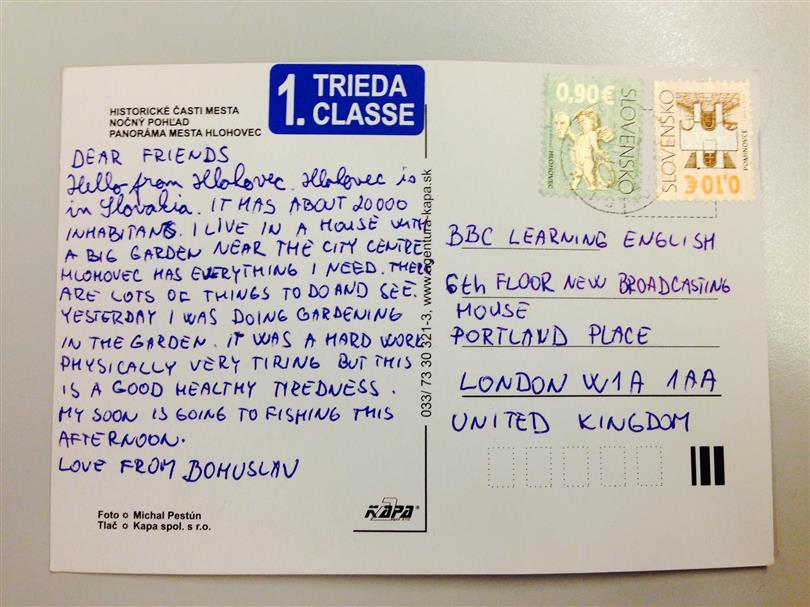 HISTORICKÉ ČASTI MESTA
NOČNÝ POHĽAD
PANORÁMA MESTA HLOHOVEC
1. TRIEDA
CLASSE
DEAR FRIENDS
Hello from Hlohovec. Hlohovec is
in Slovakia. IT HAS ABOUT 20000
INHABITANS. I LIVE IN A HOUSE WITH
A BIG GARDEN NEAR THE CITY CENTRE
HLOHOVEC HAS EVERYTHING I NEED. THERE
ARE LOTS OF THINGS TO DO AND SEE.
YESTERDAY I WAS DOING GARDENING
IN THE GARDEN. IT WAS A HARD WORK
PHYSICALLY VERY TIRING BUT THIS
IS A GOOD HEALTHY TIREDNESS.
MY SOON IS GOING TO FISHING THIS
AFTERNOON.
LOVE FROM BOHUSLAV
Foto Michal Pestún
Tlač Kapa spol. s r.o.
033/ 73 30 321-3, www.agentura-kapa.sk
KAPA
0,90 €
SLOVENSKO
HLOHOVEC
SLOVENSKO
POMINOVCE
0,10 €
BBC LEARNING ENGLISH
6th FLOOR NEW BROADCASTING
HOUSE
PORTLAND PLACE
LONDON W1A 1AA
UNITED KINGDOM